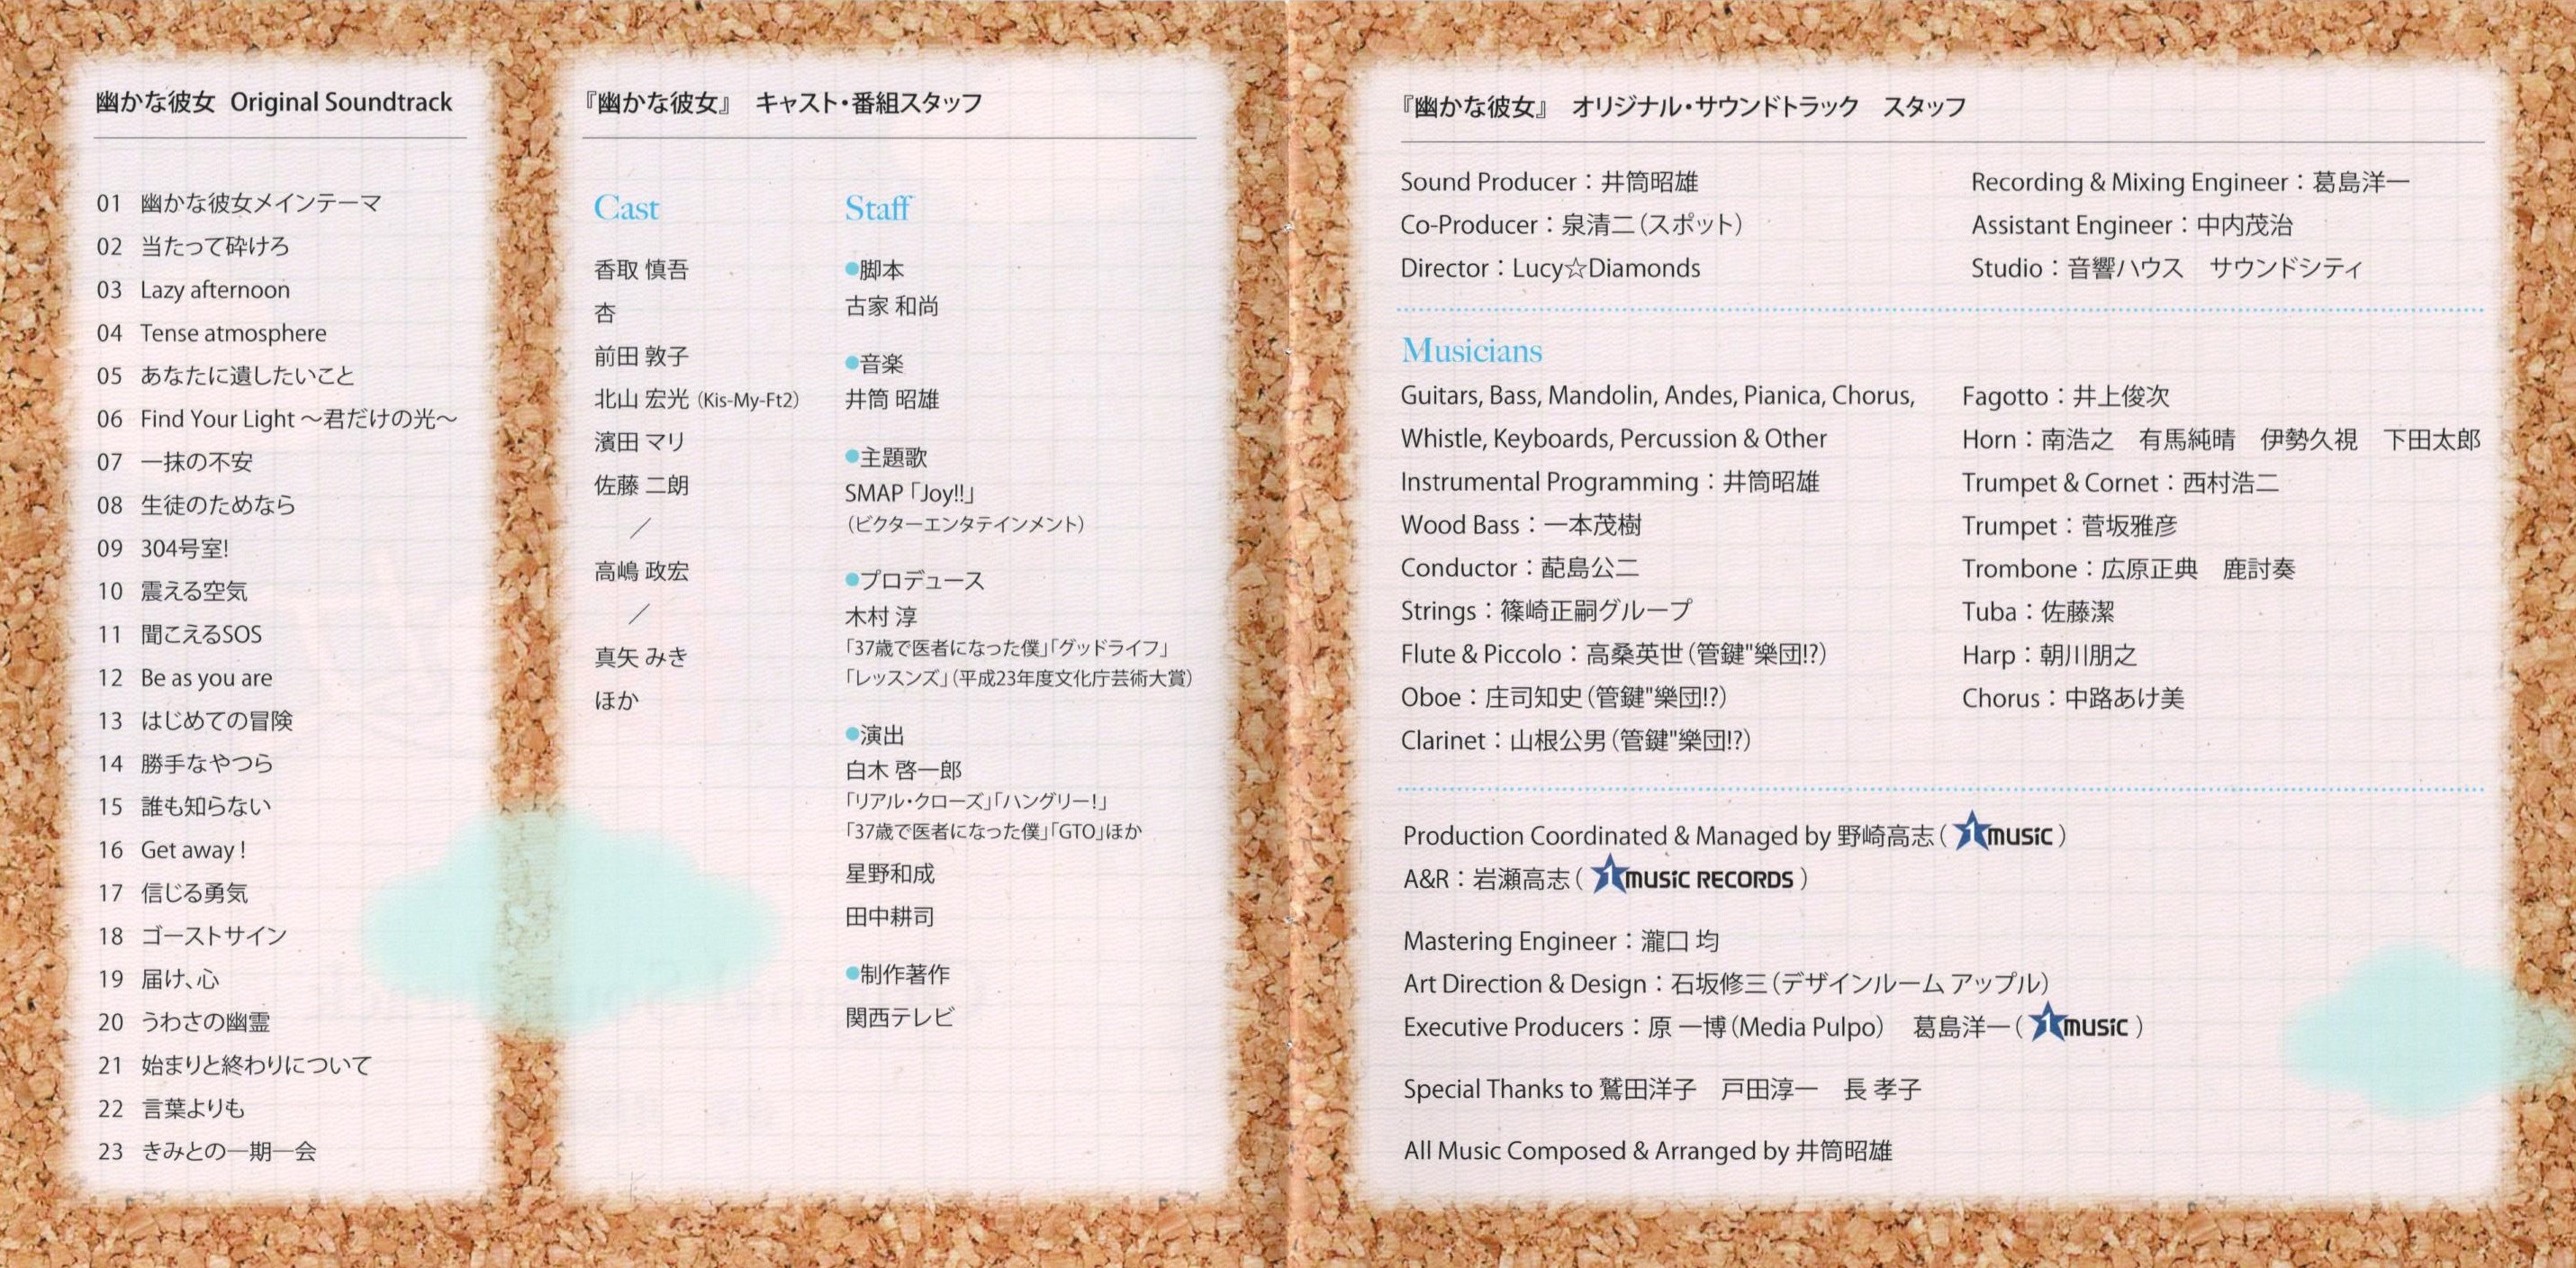 幽かな彼女 Original Soundtrack
01 幽かな彼女メインテーマ
02 当たって砕けろ
03 Lazy afternoon
04 Tense atmosphere
05 あなたに遺したいこと
06 Find Your Light ～君だけの光～
07 一抹の不安
08 生徒のためなら
09 304号室!
10 震える空気
11 聞こえるSOS
12 Be as you are
13 はじめての冒険
14 勝手なやつら
15 誰も知らない
16 Get away !
17 信じる勇気
18 ゴーストサイン
19 届け、心
20 うわさの幽霊
21 始まりと終わりについて
22 言葉よりも
23 きみとの一期一会
『幽かな彼女』 キャスト・番組スタッフ
Cast
香取 慎吾
杏
前田 敦子
北山 宏光 (Kis-My-Ft2)
濱田 マリ
佐藤 二朗
／
高嶋 政宏
／
真矢 みき
ほか
Staff
●脚本
古家 和尚
●音楽
井筒 昭雄
●主題歌
SMAP「Joy!!」
（ビクターエンタテインメント）
●プロデュース
木村 淳
「37歳で医者になった僕」「グッドライフ」
「レッスンズ」（平成23年度文化庁芸術大賞）
●演出
白木 啓一郎
「リアル・クローズ」「ハングリー!」
「37歳で医者になった僕」「GTO」ほか
星野和成
田中耕司
●制作著作
関西テレビ
『幽かな彼女』 オリジナル・サウンドトラック　スタッフ
Sound Producer：井筒昭雄
Co-Producer：泉清二（スポット）
Director：Lucy☆Diamonds
Recording & Mixing Engineer：葛島洋一
Assistant Engineer：中内茂治
Studio：音響ハウス　サウンドシティ
Musicians
Guitars, Bass, Mandolin, Andes, Pianica, Chorus,
Whistle, Keyboards, Percussion & Other
Instrumental Programming：井筒昭雄
Wood Bass：一本茂樹
Conductor：蓜島公二
Strings：篠崎正嗣グループ
Flute & Piccolo：高桑英世（管鍵"樂団!?）
Oboe：庄司知史（管鍵"樂団!?）
Clarinet：山根公男（管鍵"樂団!?）
Fagotto：井上俊次
Horn：南浩之　有馬純晴　伊勢久視　下田太郎
Trumpet & Cornet：西村浩二
Trumpet：菅坂雅彦
Trombone：広原正典　鹿討奏
Tuba：佐藤潔
Harp：朝川朋之
Chorus：中路あけ美
Production Coordinated & Managed by 野崎高志（1music）
A&R：岩瀬高志（1music RECORDS）
Mastering Engineer：瀧口 均
Art Direction & Design：石坂修三（デザインルーム アップル）
Executive Producers：原 一博（Media Pulpo）　葛島洋一（1music）
Special Thanks to 鷲田洋子　戸田淳一　長 孝子
All Music Composed & Arranged by 井筒昭雄